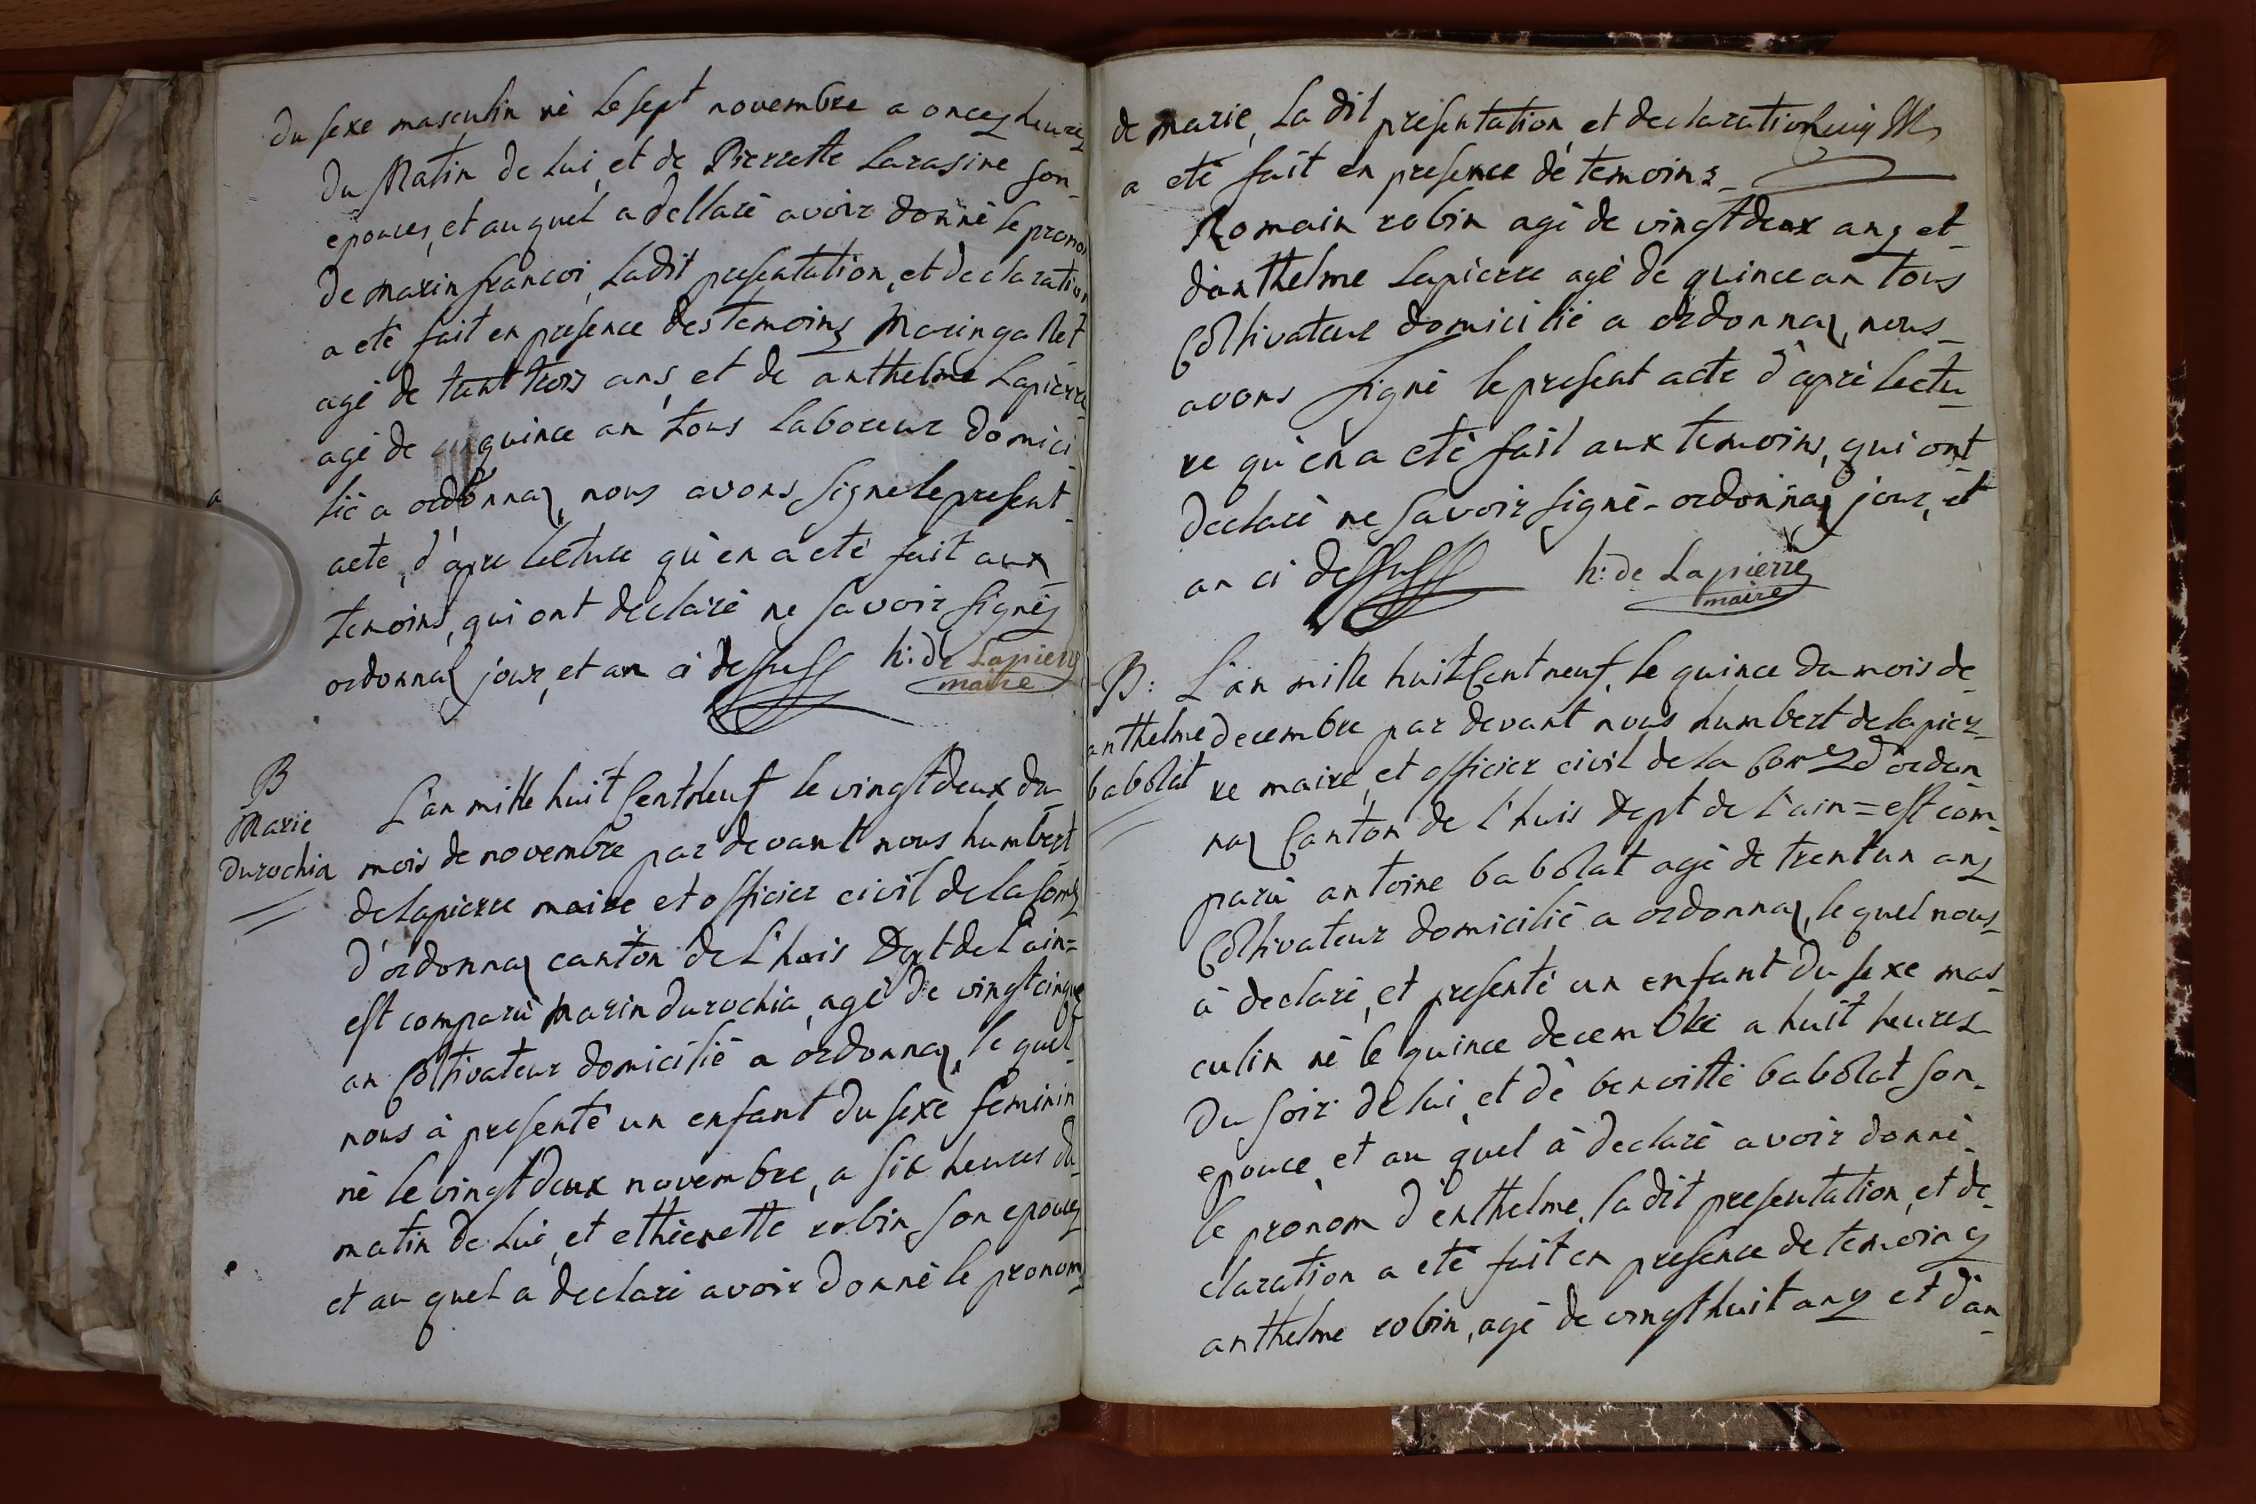 du sexe masculin né le sept novembre a onces heures
du Matin de lui, et de Pierrette Larasine son
epouces, et au quel a dellaré avoir donné le pronom
de marin francoi, ladit presentation, et declaration
a eté fait en presence des temoins
agé de trent trois ans, et de anthelme Lapierre
agé de quince an tous laboreur domici-
lié a ordonnaz, nous avons signe le present
acte, d'apre lecture qu'en a eté fait aux
temoins, qui ont déclaré ne savoir signés
ordonnaz jour, et an ci dessus h: de Lapierre
maire
B
Marie
Durochia
L'an mille huit Cent neuf le vingt deux du
mois de novembre par devant nous humbert
delapierre maire et officier civil de la Com
d'ordonnaz canton de L'huis Dept de L'ain =
est comparu marin durochia, agé de vingt cinque
an Coltivateur domicilié a ordonnaz, le quel
nous à presenté un enfant du sexe feminin
né le vingt deux novembre, a six heures du
matin de lui, et ethienette robin son epouces
et au quel a declaré avoir donné le pronom
de marie, la dit presentation, et declaration
a eté fait en presence de temoins
Romain robin agé de vingt deux ans et
d'anthelme Lapierre agé de quince an tous
Coltivateur domicilié a ordonnaz, nous
avons signé le present acte d'apré lectu-
re qu'en a eté fait aux temoins, qui ont
declaré ne savoir signé - ordonnaz jour, et
an ci dessus h: de Lapierre
maire
B:
anthelme
babolat
L'an mille huit Cent neuf, le quince du mois de
decembre par devant nous humbert delapier-
re maire, et officier civil de la Com d'ordon
naz Canton de l'huis Dept de L'ain = est com-
paru antoine babolat agé de trent un ans
Coltivateur domicilié a ordonnaz, le quel nous
à declaré, et presenté un enfant du sexe mas-
culin né le quince decembre a huit heures
du soir de lui, et de benoitte babolat son
epouce, et au quel à declaré avoir donné
le pronom d'enthelme, ladit presentation, et de
claration a eté fait en presence de temoins
anthelme robin, agé de vingt huit ans et d'an-